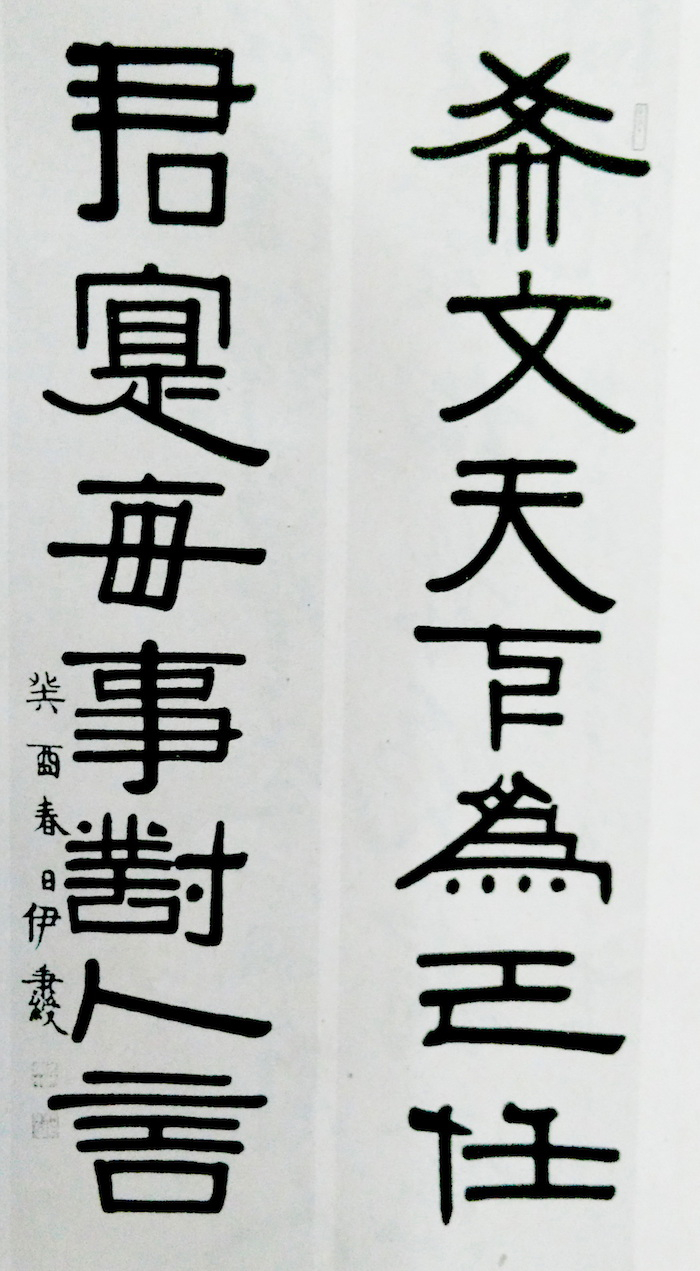 希文天下為己任
君寔每事對人言
癸酉春日伊秉綬